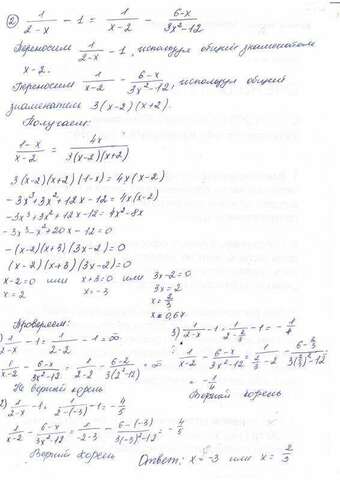 ② 1/(2-x) - 1 = 1/(x-2) - (6-x)/(3x²-12)
Переносим 1/(2-x) - 1, используя общий знаменатель
x-2.
Переносим 1/(x-2) - (6-x)/(3x²-12), используя общий
знаменатель 3(x-2)(x+2).
Получаем:
(1-x)/(x-2) = 4x/(3(x-2)(x+2))
3(x-2)(x+2)(1-x) = 4x(x-2)
-3x³+3x²+12x-12 = 4x(x-2)
-3x³+3x²+12x-12 = 4x²-8x
-3x³-x²+20x-12=0
-(x-2)(x+3)(3x-2)=0
(x-2)(x+3)(3x-2)=0
x-2=0 или x+3=0 или 3x-2=0
x=2 x=-3 3x=2
x=2/3
x≈0,6x
Проверяем:
1) 1/(2-x) - 1 = 1/(2-2) - 1 = ∞
1/(x-2) - (6-x)/(3x²-12) = 1/(2-2) - (6-2)/(3(2²-12)) = ∞
Не верный корень
2) 1/(2-x) - 1 = 1/(2-(-3)) - 1 = -4/5
1/(x-2) - (6-x)/(3x²-12) = 1/(-2-3) - (6-(-3))/(3(-3)²-12) = -4/5
Верний корень
3) 1/(2-x) - 1 = 1/(2-2/3) - 1 = -1/4
1/(x-2) - (6-x)/(3x²-12) = 1/(2/3-2) - (6-2/3)/(3(2/3)²-12) =
= -1/4
Верний корень
Ответ: x=-3 или x=2/3